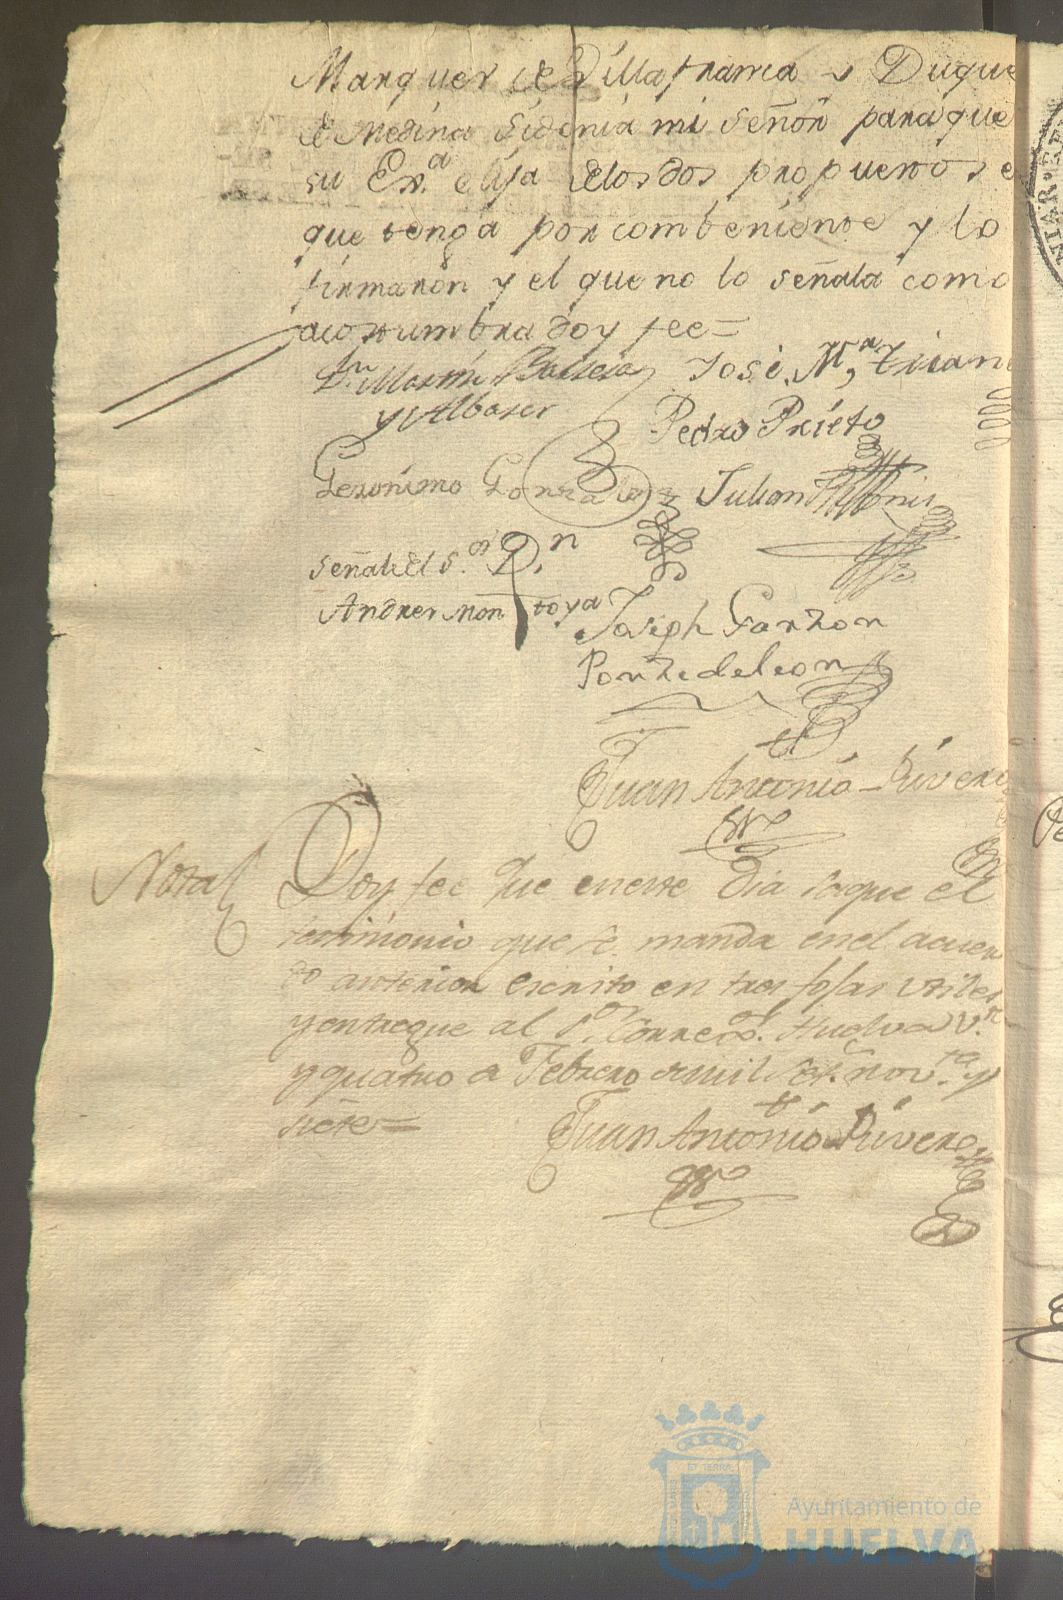 Marques de Villafranca y Duque
de Medina Sidonia mi señor para que
su Ex.ª elija delos dos propuestos el
que tenga por combeniente y lo
firmaron y el que no lo señala como
acostumbra doy fee =
José M.ª Trian
y Albaser
Pedro Prieto
Geronimo Gonzalez Julian
señal del S.or D.n
Andres Montoya
Joseph Garzon
Ponze de leon
Juan Antonio Rivero
Nota Doy fee que eneste dia saque el
testimonio que se manda enel acuer
do anterior escrito en tres fojas utiles
y entregue al S.or Correg.or Huelva V.te
y quatro de Febrero de mil set.s nov.ta y
siete =
Juan Antonio Rivero
Ayuntamiento de
HUELVA